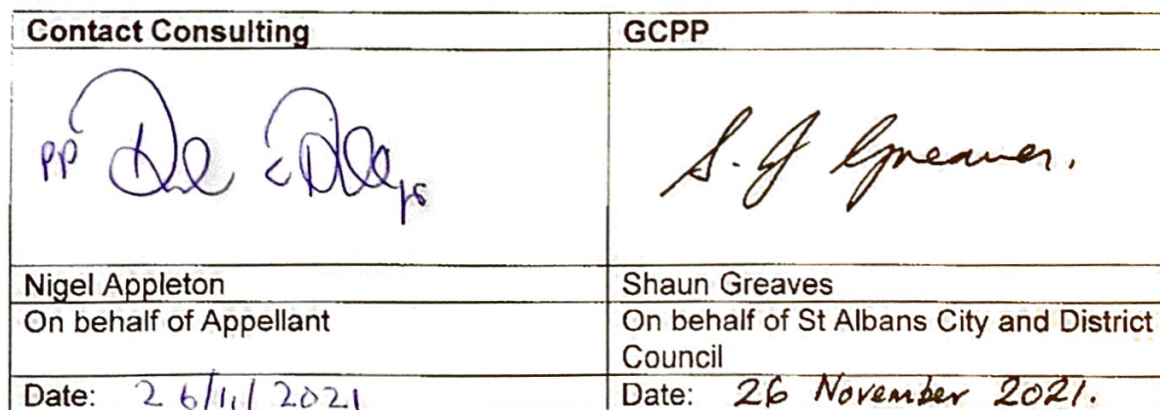 Contact Consulting
GCPP
PP
S. J Greaves.
Nigel Appleton
Shaun Greaves
On behalf of Appellant
On behalf of St Albans City and District
Council
Date: 26/11/2021
Date: 26 November 2021.